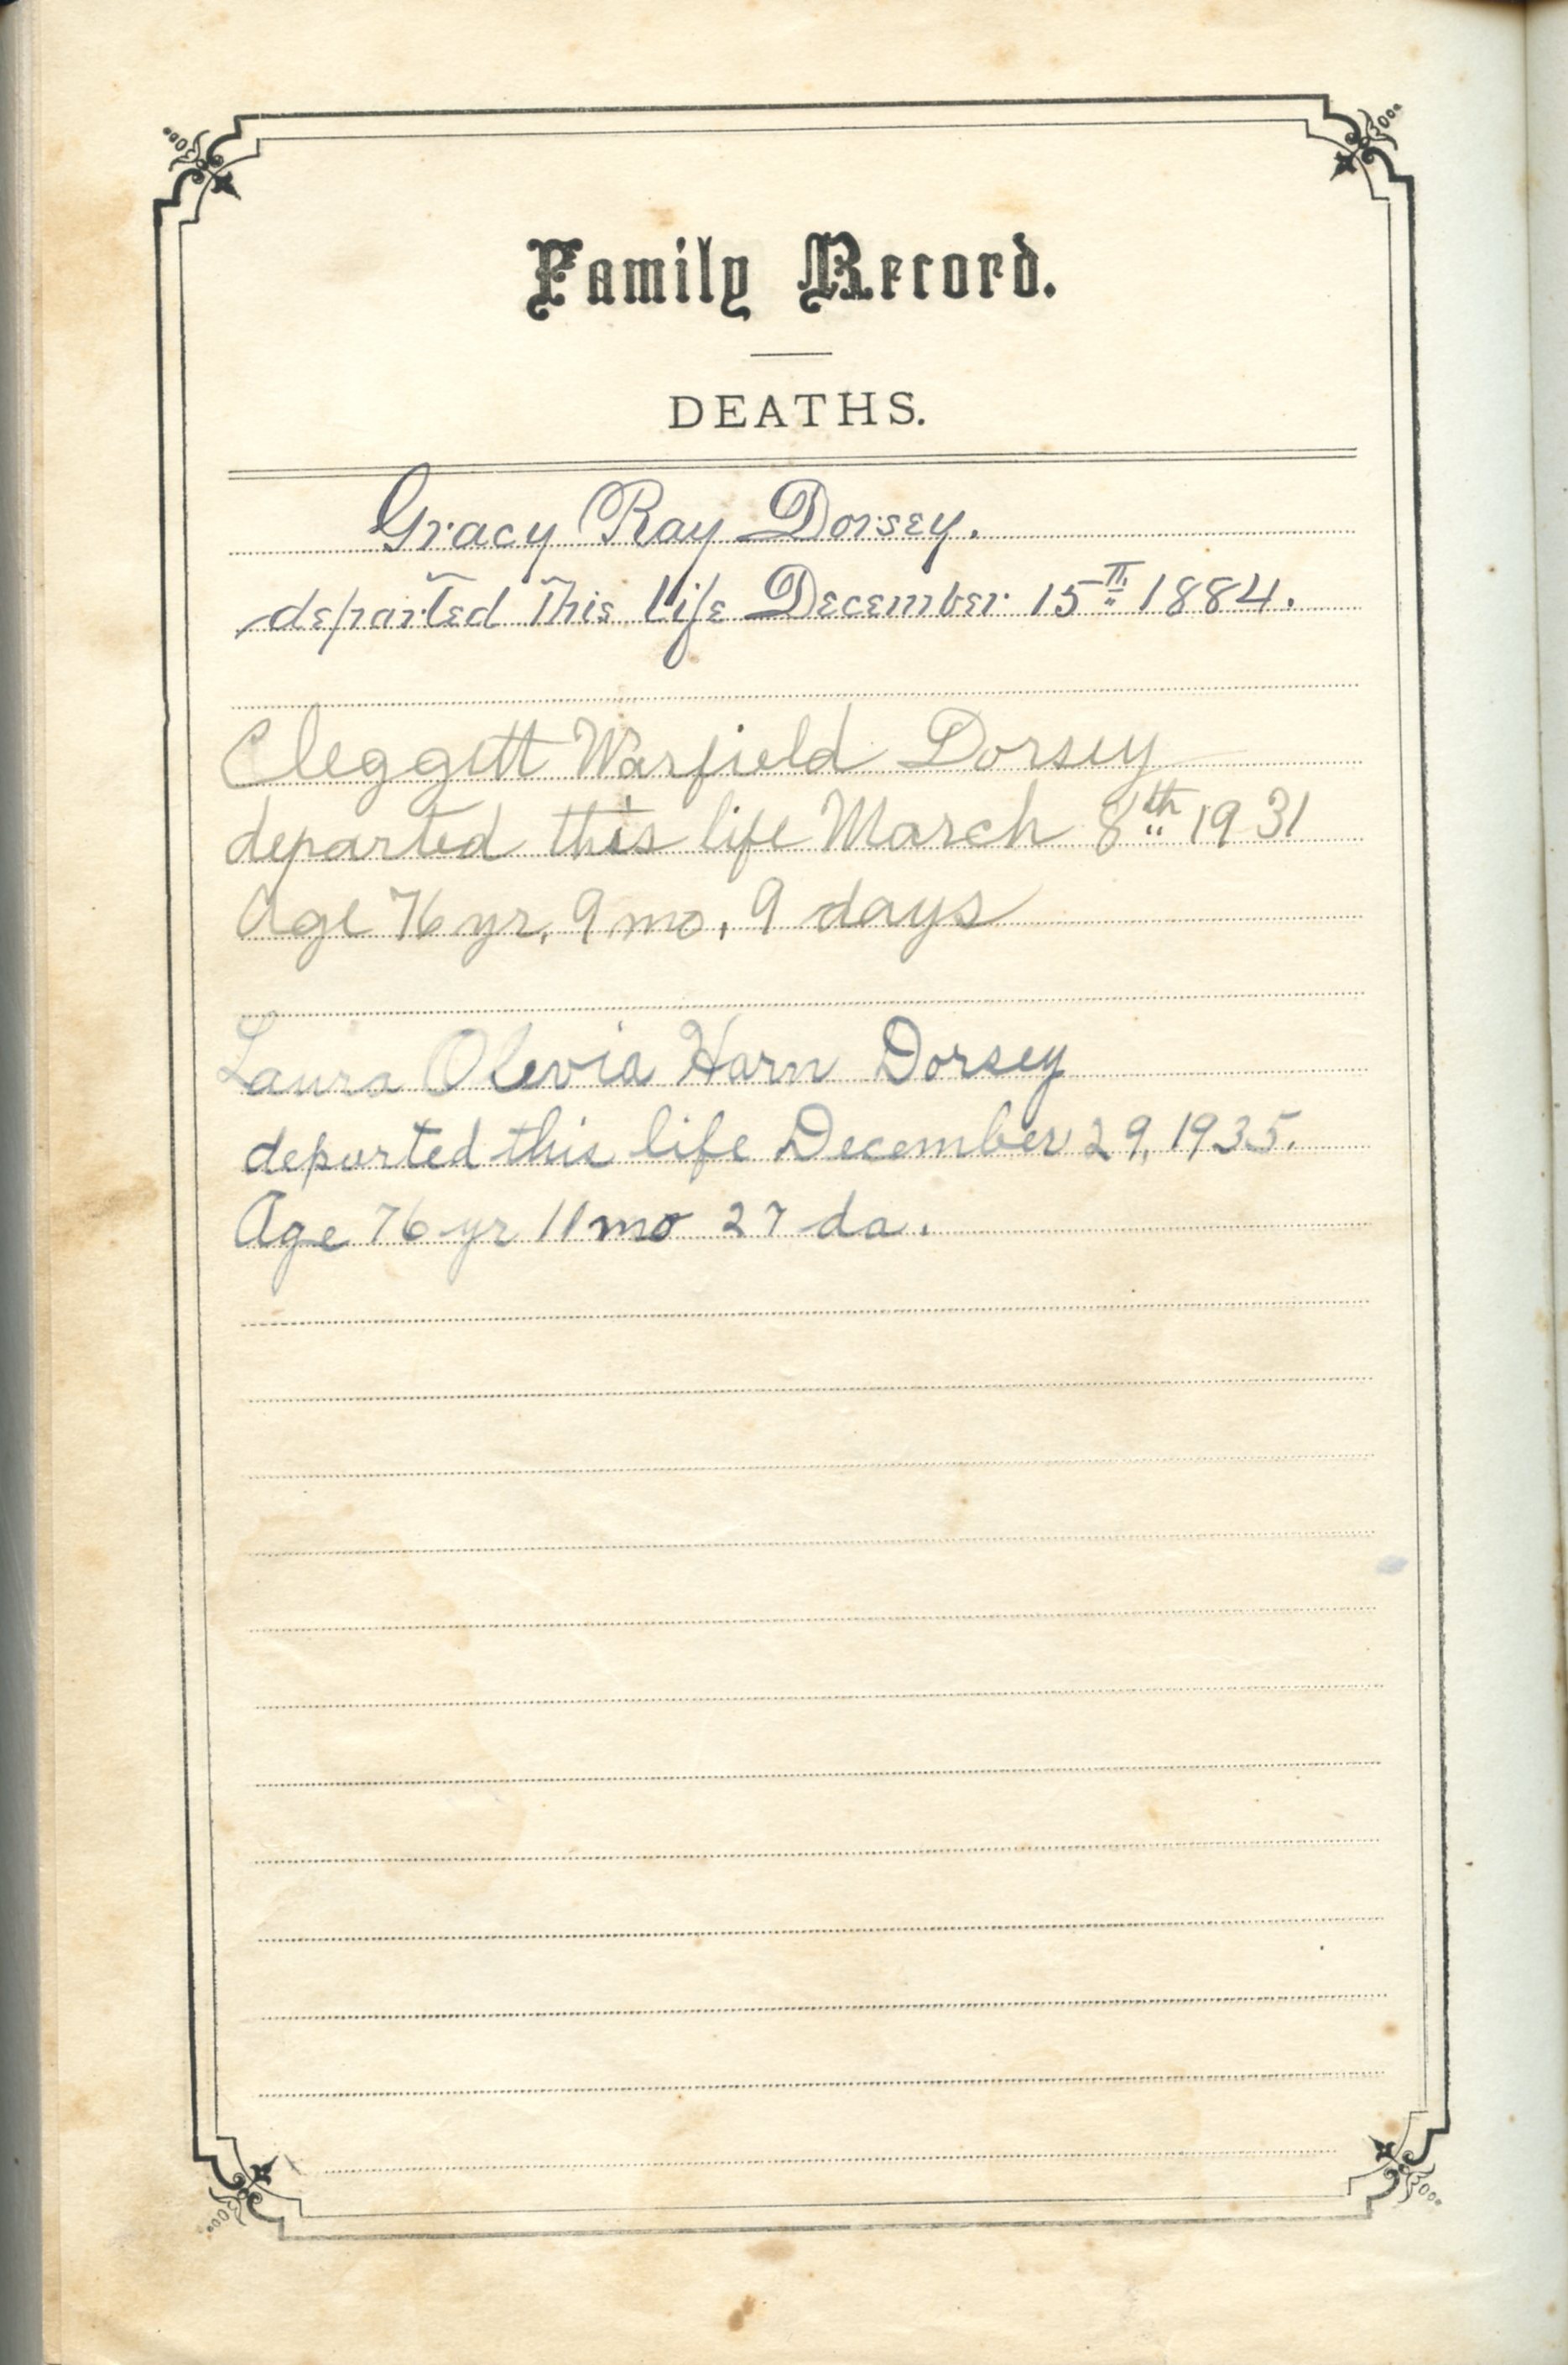 Family Record.
DEATHS.
Gracy Ray Dorsey.
departed This life December 15th 1884.
Cleggett Warfield Dorsey
departed this life March 8th 1931
Age 76 yr, 9 mo, 9 days
Laura Olevia Harn Dorsey
departed this life December 29, 1935.
Age 76 yr 11 mo 27 da.